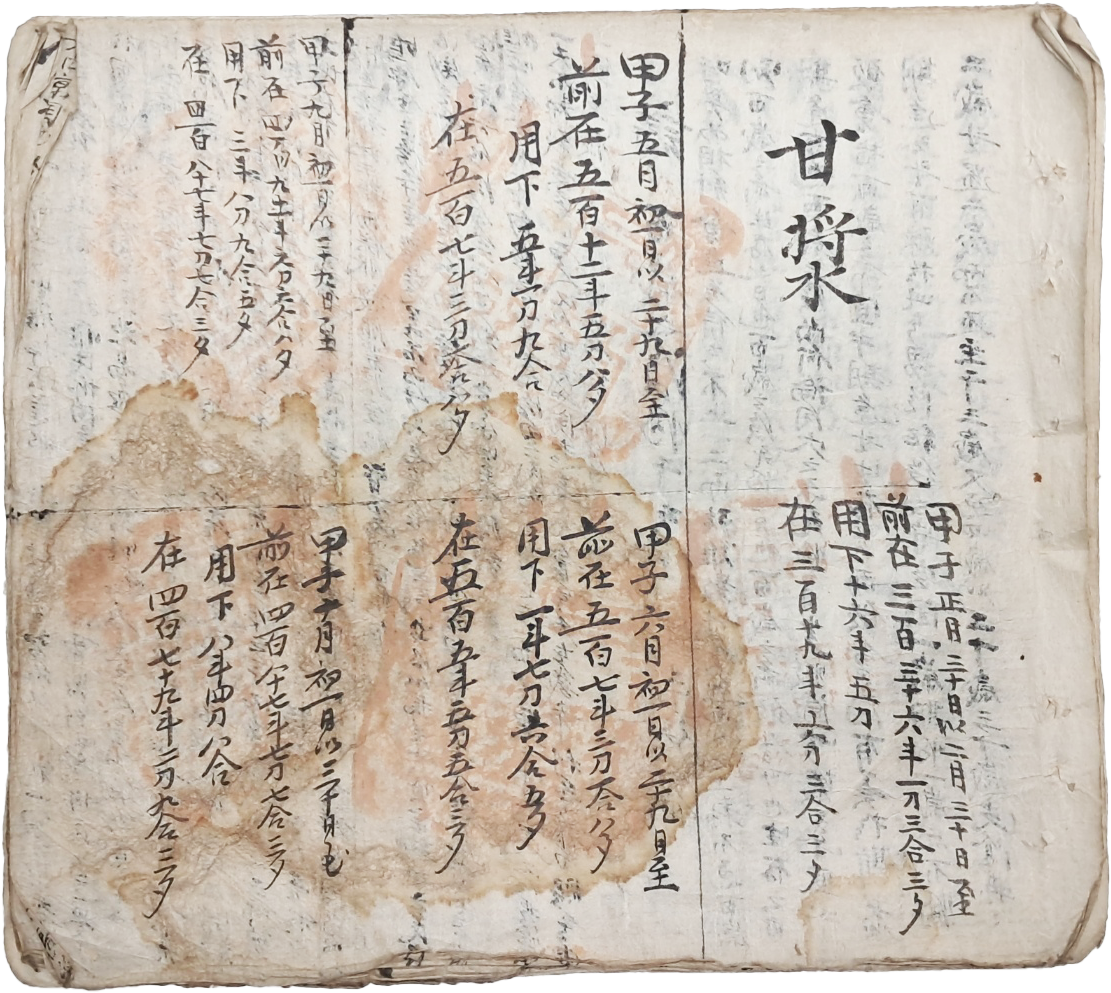 甘漿
甲子正月三十日以二月三十日至
前在三百三十六斗一刀三合三夕
用下十六斗五刀
在三百十九斗六刀三合三夕
甲子五月初一日以二十九日至
前在五百十二斗五刀八夕
用下五斗一刀九合
在五百七斗三刀一合八夕
甲子六月初一日以二十九日至
前在五百七斗三刀一合八夕
用下一斗七刀六合五夕
在五百五斗五刀五合三夕
甲子九月初一日以二十九日至
前在四百九十一斗六刀六合八夕
用下三斗八刀九合五夕
在四百八十七斗七刀七合三夕
甲子十月初一日以三十日至
前在四百八十七斗七刀七合三夕
用下八斗四刀八合
在四百七十九斗二刀九合三夕